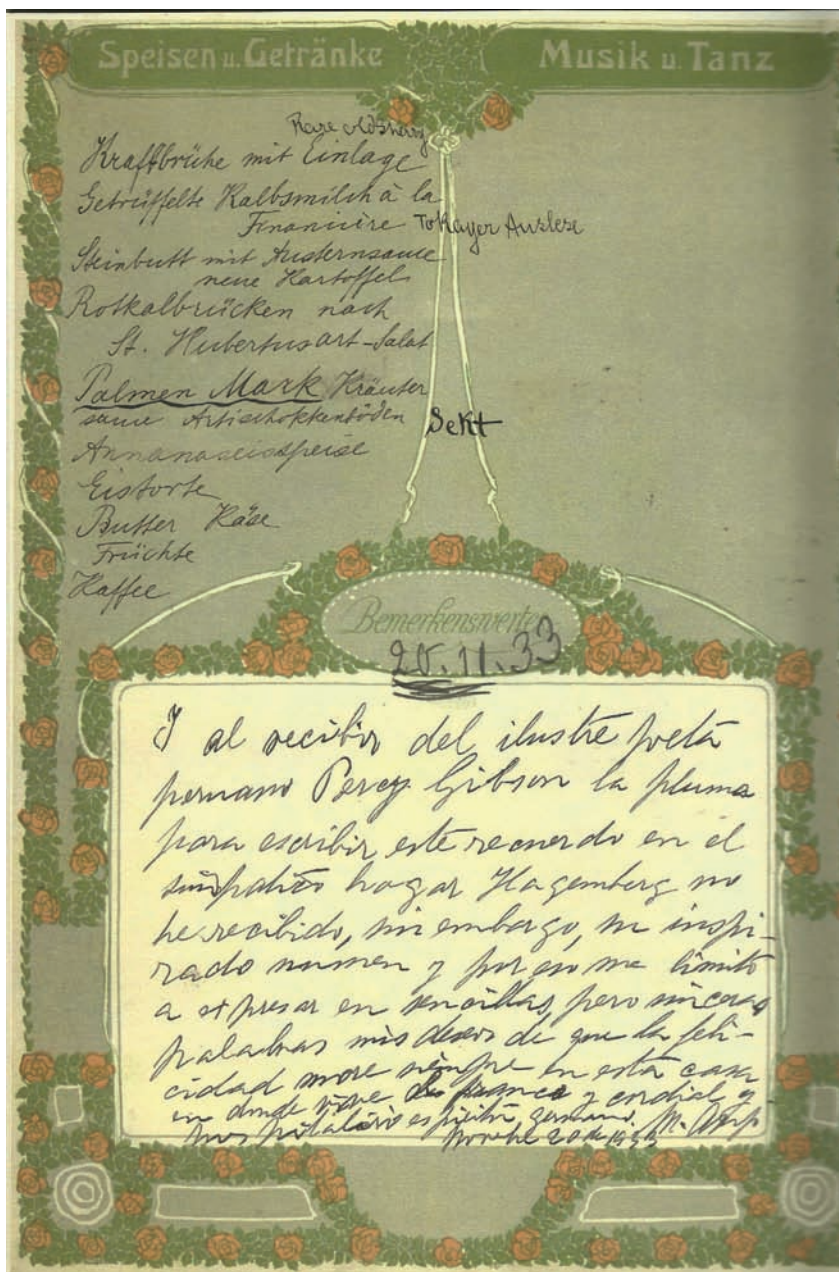 Speisen u. Getränke
Musik u. Tanz
Rare old Sherry
Kraftbrühe mit Einlage
Getrüffelte Kalbsmilch à la
Financière Tokayer Auslese
Steinbutt mit Austernsauce
neue Kartoffel
Rotkalbrücken nach
St. Hubertusart-Salat
Palmen Mark Kräuter
sauce Artischokkenböden Sekt
Annanaseisspeise
Eistorte
Butter Käse
Früchte
Kaffee
Bemerkenswertes
20.11.33
Y al recibir del ilustre poeta
peruano Percy Gibson la pluma
para escribir este recuerdo en el
simpático hogar Hagemberg no
he recibido, sin embargo, su inspi-
rado numen y por eso me limito
a expresar en sencillas, pero sinceras
palabras mis deseos de que la feli-
cidad more siempre en esta casa
en donde vive franco y cordial y
hospitalario espíritu germano. M.
Novbre 20 de 1933